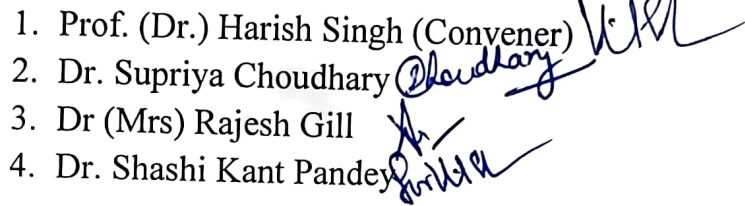 1. Prof. (Dr.) Harish Singh (Convener)
2. Dr. Supriya Choudhary Choudhary
3. Dr (Mrs) Rajesh Gill
4. Dr. Shashi Kant Pandey